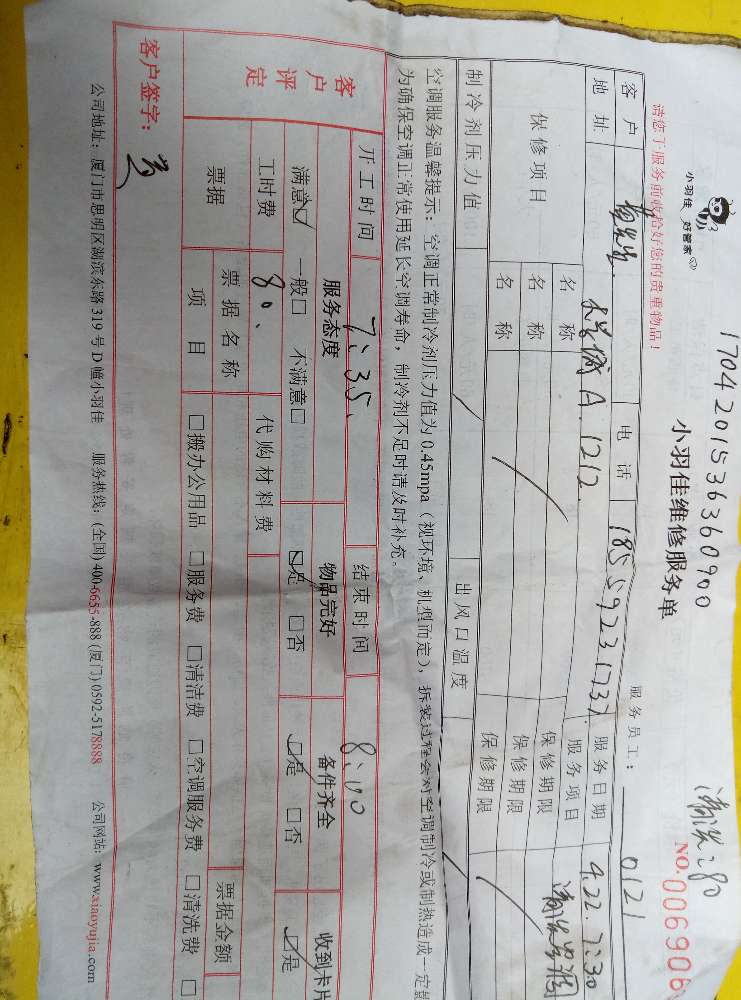 小羽佳 好管家
1704201536360900
清洗:80
小羽佳维修服务单
NO.006906
请您于服务前收拾好您的贵重物品!
服务员工: 0121
客户 电话 18559231737 服务日期 4.22. 7:30
地址 A.1212 服务项目
保修项目 名称 保修期限
名称 保修期限
名称 保修期限
制冷剂压力值 出风口温度
空调服务温馨提示: 空调正常制冷剂压力值为0.45mpa (视环境、机型而定), 拆装过程会对空调制冷或制热造成一定
为确保空调正常使用延长空调寿命, 制冷剂不足时请及时补充。
开工时间 7:35. 结束时间 8:00
客户评定 服务态度 物品完好 备件齐全 收到卡片
满意☑ 一般□ 不满意□ ☑是 □否 ☑是 □否 ☑是
工时费 80. 代购材料费
票据 票据名称 票据金额
项目 □搬办公用品 □服务费 □清洁费 □空调服务费 □清洗费 □
客户签字:
公司地址: 厦门市思明区湖滨东路319号D幢小羽佳 服务热线: (全国) 400-6655-888 (厦门) 0592-5178888 公司网站: www.xiaoyujia.com